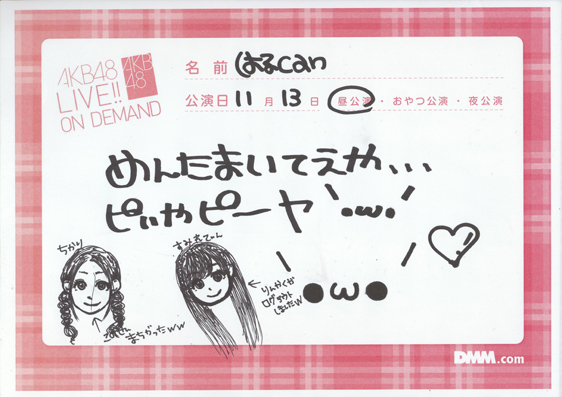 AKB48
LIVE!!
ON DEMAND
AKB
48
名前 はるcan
公演日 11月13日 昼公演・おやつ公演・夜公演
めんたまいてえや、、、
ピいやピーヤ '•ω•'
ちかり
すみれてぃん
ごめんまちがったww
←りんかくがログアウトしましたw
\ ●ω● /
DMM.com